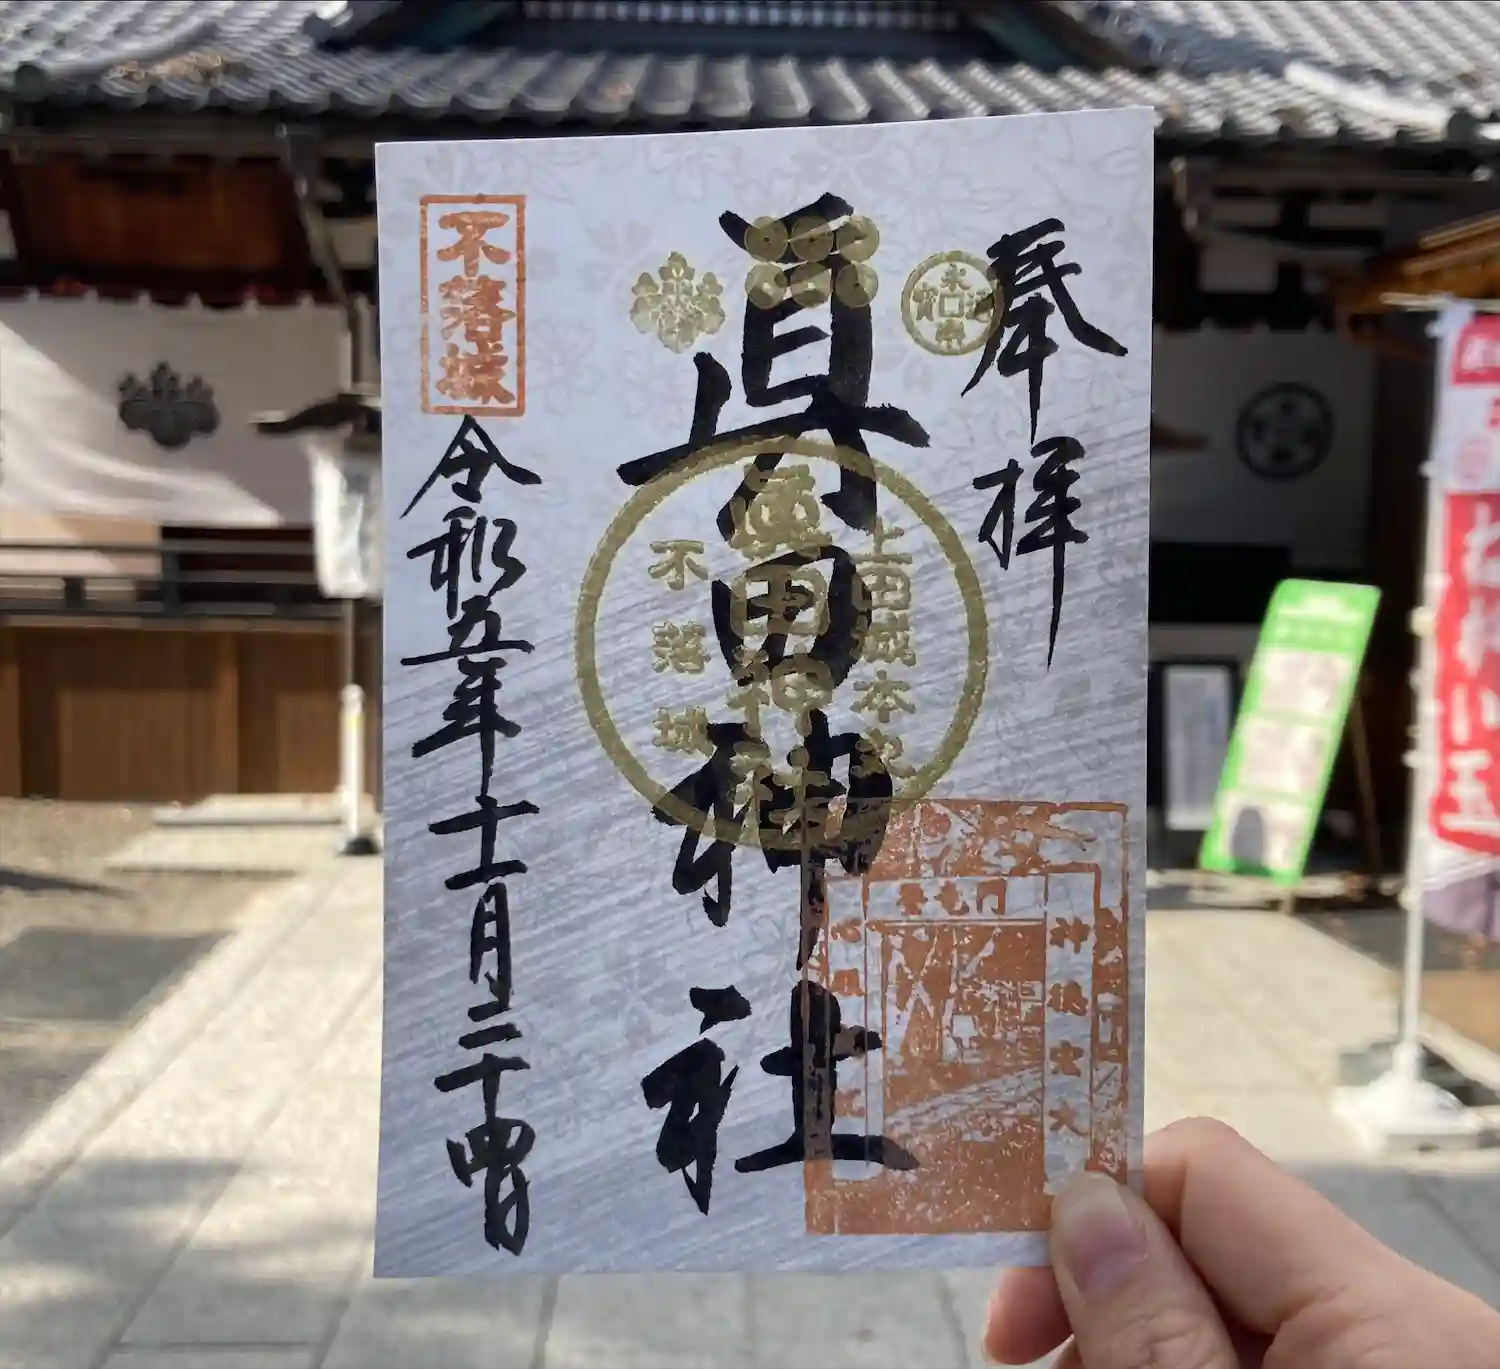 奉拝
眞田神社
不落城
令和五年十一月二十四日
上田城本丸
眞田神社
不落城
登竜門